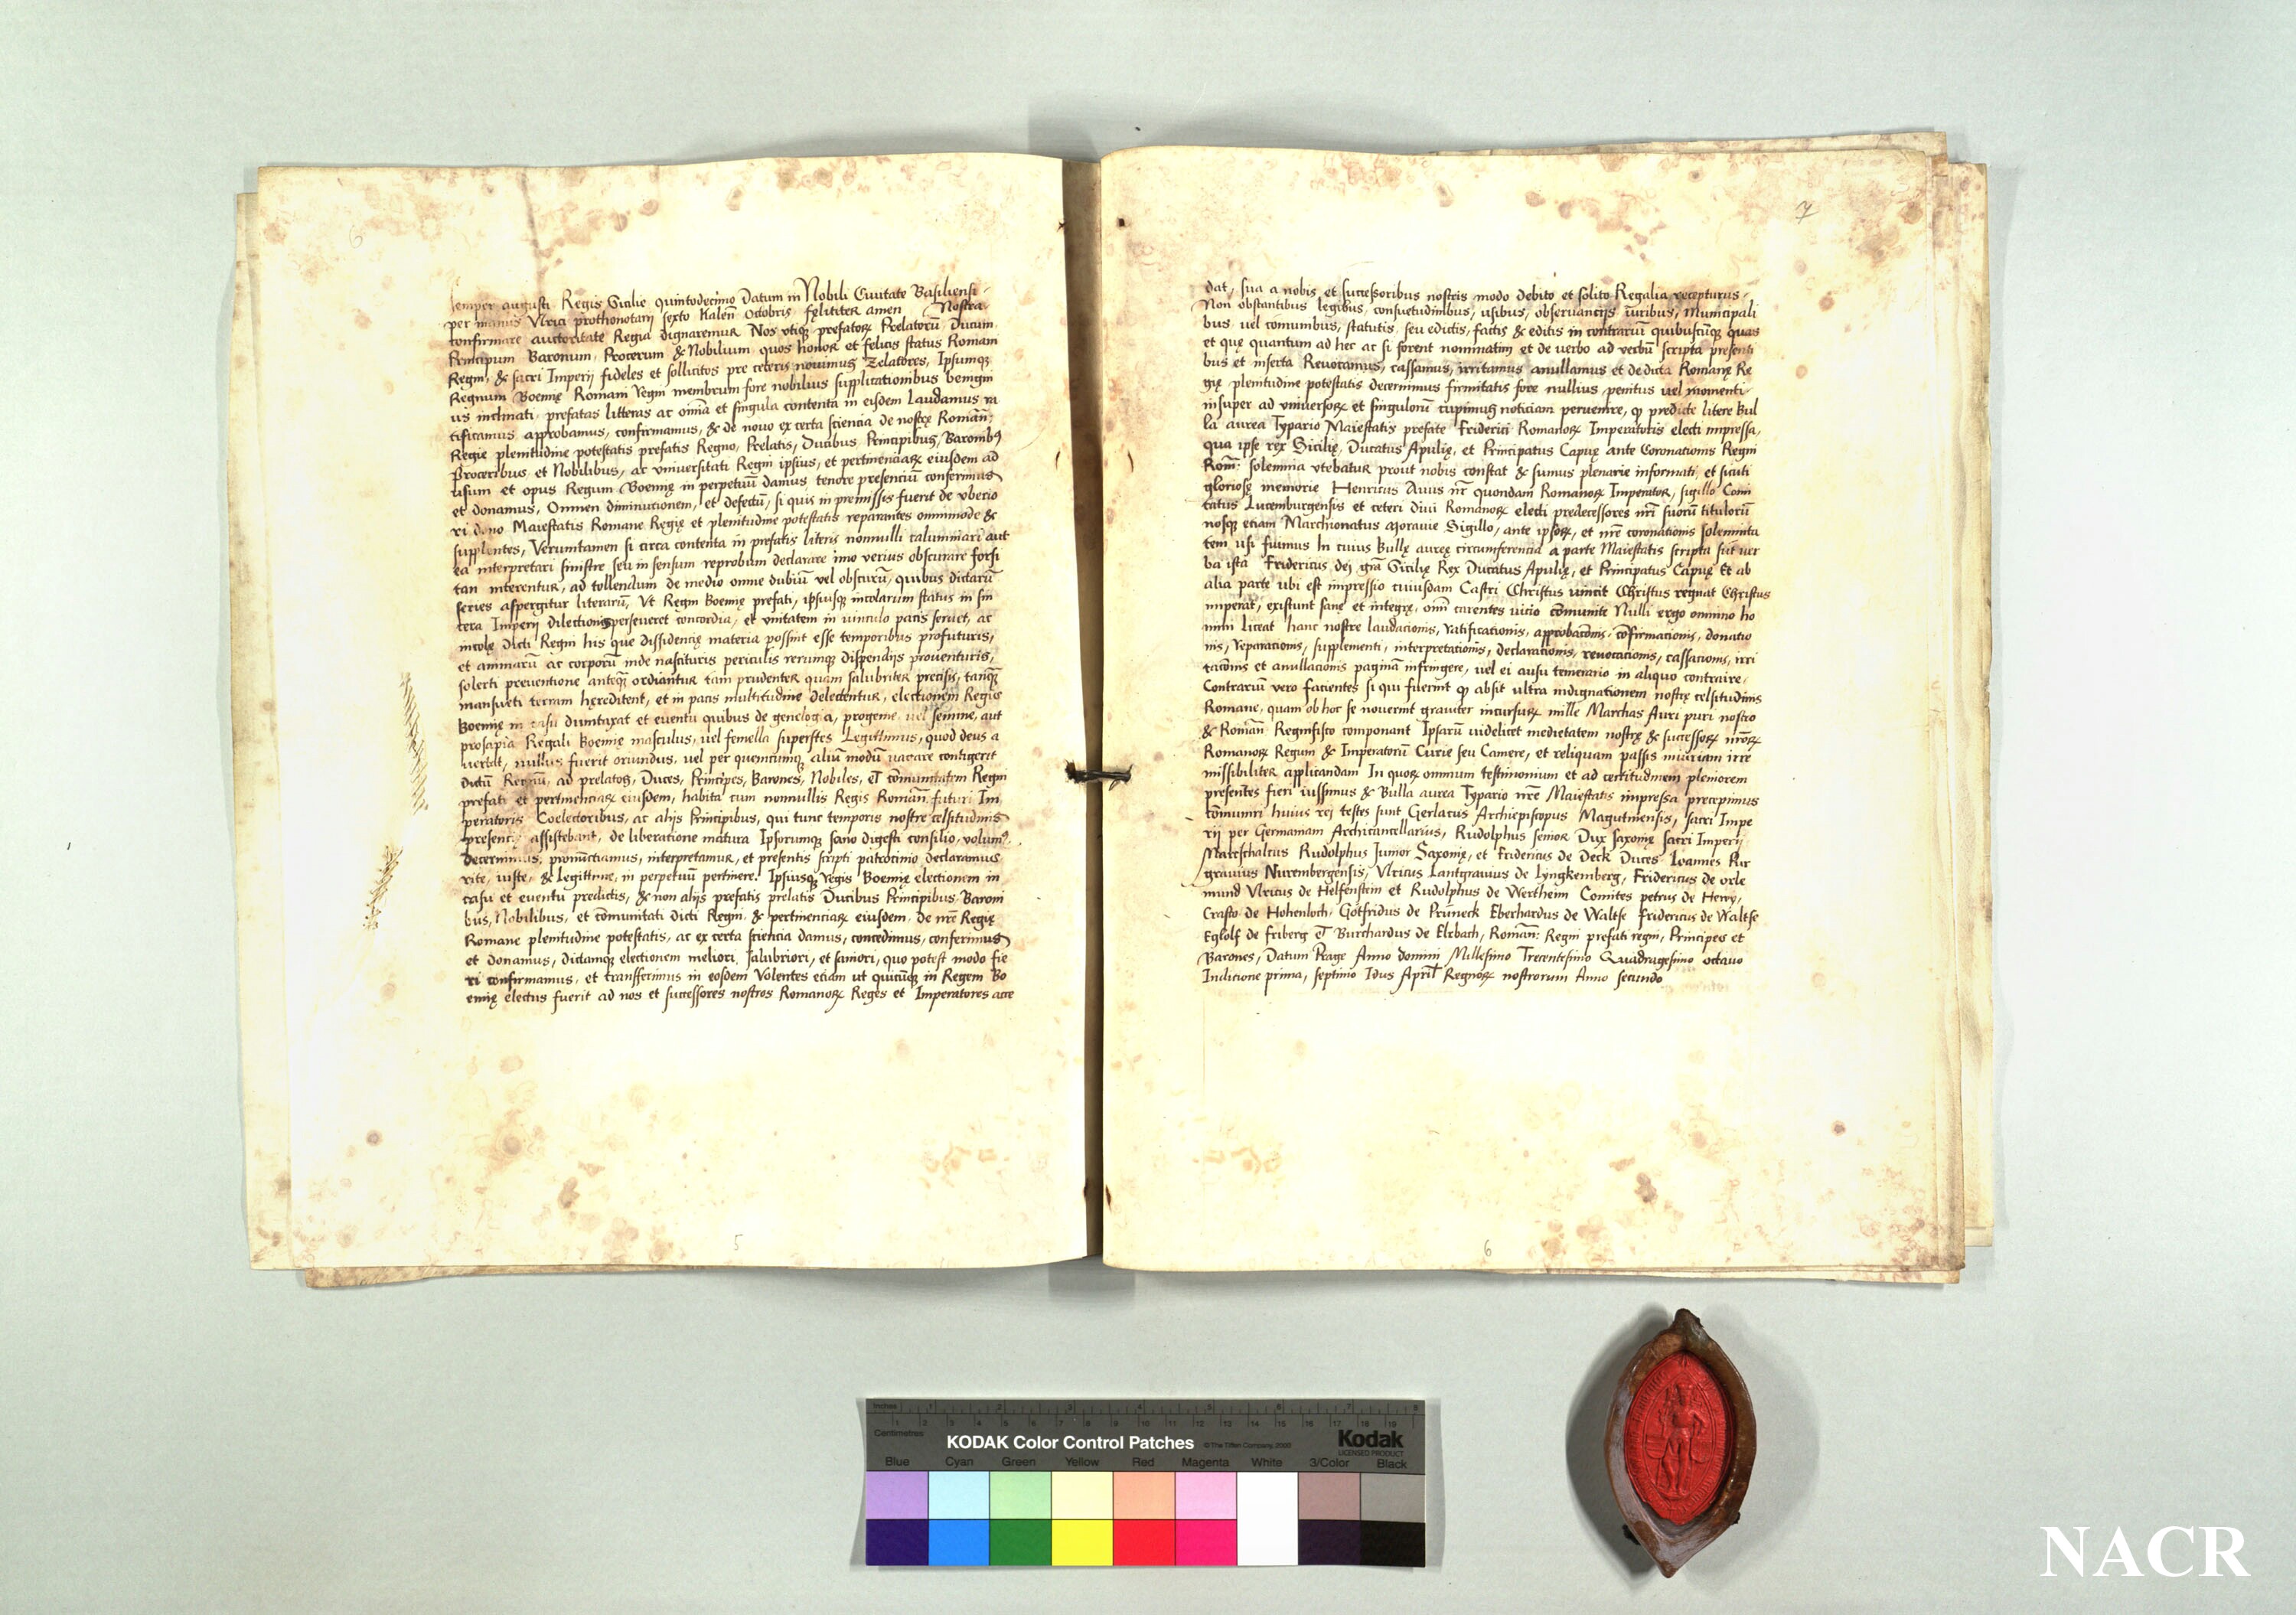 6
semper augusti Regis Sicilie quintodecimo Datum in Nobili Civitate Basiliensi
per manus Ulrici prothonotarij sexto kalen̄ Octobris feliciter amen Nostra
confirmare auctoritate Regia dignaremur Nos utiqꝫ prefatoꝝ Prelatorū Ducum
Principum Baronum Procerum & Nobilium quos honor et felicis status Romani
Regni, & sacri Imperij fideles et sollicitos pre ceteris novimus Zelatores, Ipsumqꝫ
Regnum Boemię Romani Regni membrum fore nobilius supplicationibus benigni
us inclinati prefatas litteras ac om̄ia et singula contenta in eisdem Laudamus ra
tificamus approbamus, confirmamus, & de novo ex certa sciencia de nostrę Roman̄:
Regie plenitudine potestatis prefatis Regno, Prelatis, Ducibus Principibus, Baronibꝰ
Proceribus et Nobilibus, ac universitati Regni ipsius, et pertinenciaꝝ eiusdem ad
usum et opus Regum Boemię in perpetuū damus tenore presenciū conferimus
et donamus, Omnem diminucionem, et defectū, si quis in premissis fuerit de uberio
ri dono Maiestatis Romane Regię et plenitudine potestatis reparantes omnimode &
supplentes, Verumtamen si circa contenta in prefatis literis nonnulli calumniare aut
ea interpretari sinistre seu in sensum reprobum declarare imo verius obscurare forsi
tan niterentur, ad tollendum de medio omne dubiū vel obscurū, quibus dictarū
series aspergitur literarū, Ut Regni Boemię prefati, ipsiusqꝫ incolarum status in sin
cera Imperij dilectionis perseveret concordia, et unitatem in vinculo pacis servet, ac
incolę dicti Regni his que dissidencię materia possint esse temporibus profuturis,
et animarū ac corporū inde nascituris periculis rerumqꝫ dispendijs proventuris,
solerti preventione anteqꝫ ordiantur tam prudenter quam salubriter precisis, tanqꝫ
mansueti terram hereditent, et in pacis multitudine delectentur, electionem Regis
Boemię in casu dumtaxat et eventu quibus de genelogia, progenie, vel semine, aut
prosapia Regali Boemię masculus, vel femella superstes Legittimus, quod deus a
vertat, nullus fuerit oriundus, vel per quemcumqꝫ aliū modū vacare contigerit
dictū Regnū, ad prelatos, Duces, Principes, Barones, Nobiles, et cōmunitatem Regni
prefati et pertinenciaꝝ eiusdem, habita cum nonnullis Regis Roman̄. futuri Im
peratoris Coelectoribus, ac alijs Principibus, qui tunc temporis nostre celsitudinis
presencię assistebant, de liberatione matura Ipsorumqꝫ sano digesti consilio, volumꝰ
decernimus, pronūctiamus, interpretamur, et presentis scripti patrocinio declaramus
rite, iuste, & legittime, in perpetuū pertinere. Ipsiusqꝫ Regis Boemię electionem in
casu et eventu predictis, & non alijs prefatis prelatis Ducibus Principibus Baroni
bus, Nobilibus, et cōmunitati dicti Regni & pertinenciaꝝ eiusdem de nr̄e Regię
Romane plenitudine potestatis, ac ex certa sciencia damus, concedimus, conferimus
et donamus, dictamqꝫ electionem meliori salubriori, et saniori, quo potest modo fie
ri confirmamus, et transferimus in eosdem Volentes etiam ut quicūqꝫ in Regem Bo
emię electus fuerit ad nos et successores nostros Romanoꝝ Reges et Imperatores acce
5
7
dat, sua a nobis et successoribus nostris modo debito et solito Regalia recepturus
Non obstantibus legibus, consuetudinibus, usibus, observancijs iuribus, Municipali
bus vel comunibus, statutis seu edictis, factis & editis in contrariū quibuscūqꝫ quas
et que quantum ad hec ac si forent nominatim et de verbo ad verbū scripta presenti
bus et inserta Revocamus, cassamus, irritamus anullamus et de dicta Romanę Re
gię plenitudine potestatis decernimus firmitatis fore nullius penitus vel momenti
insuper ad universoꝝ et singulorū cupimus noticiam pervenire, qꝫ predicte litere Bul
la aurea Typario Maiestatis prefate Friderici Romanoꝝ Imperatoris electi impressa,
qua ipse rex Sicilię, Ducatus Apulię, et Principatus Capuę ante Coronationis Regni
Rom̄: solemnia utebatur prout nobis constat & sumus plenarie informati, et sicuti
gloriosę memorie Henricus Avus nr̄ quondam Romanoꝝ Imperator, sigillo Comi
tatus Lucemburgensis et ceteri Divi Romanoꝝ electi predecessores nr̄i suorū titulorū
nosqꝫ etiam Marchionatus Moravie Sigillo, ante ipsoꝝ, et nr̄e coronationis solemnita
tem usi fuimus In cuius Bullę aureę circumferencia a parte Maiestatis scripta sūt ver
ba ista Fridericus dei gr̄a Sicilię Rex Ducatus Apulię, et Principatus Capuę Et ab
alia parte ubi est impressio cuiusdam Castri Christus vincit Christus regnat Christus
imperat, existunt sane et integre, omni carentes vicio cōmunite Nulli ergo omnino ho
mini liceat hanc nostre laudacionis, ratificationis, approbacōnis, cōfirmacionis, donatio
nis, reparacionis, supplementi, interpretationis, declarationis, revocacionis, cassacionis, irri
tacōnis et anullacionis paginā infringere, vel ei ausu temerario in aliquo contraire
Contrariū vero facientes si qui fuerint qꝫ absit ultra indignationem nostrę celsitudinis
Romane, quam ob hoc se noverint graviter incursuꝝ mille Marchas Auri puri nostro
& Roman̄ Regni fisco componant Ipsarū videlicet medietatem nostrę & successoꝝ nr̄oꝝ
Romanoꝝ Regum & Imperatorū Curie seu Camere, et reliquam passis iniuriam irre
missibiliter applicandam In quoꝝ omnium testimonium et ad certitudinem pleniorem
presentes fieri iussimus & Bulla aurea Typario nr̄e Maiestatis impressa precepimus
cōmuniri huius rei testes sunt Gerlacus Archiepiscopus Maguntinensis, sacri Impe
rij per Germaniam Archicancellarius, Rudolphus senior Dux Saxonię sacri Imperij
Mareschalcus Rudolphus Iunior Saxonię, et Fridericus de Deck Duces Ioannes Pur
gravius Nurembergensis, Ulricus Lantgravius de Lyngkemberg, Fridericus de orle
mund Ulricus de Helfenstein et Rudolphus de Wertheim Comites petrus de Henny,
Crafto de Hohenloch, Gotfridus de Pruneck Eberhardus de Waltse Fridericus de Waltse
Eglolf de friberg et Burchardus de Elrbach, Roman̄: Regni prefati regni, Principes et
Barones, Datum Prage Anno domini Millesimo Trecentesimo Quadragesimo octavo
Indicione prima, septimo Idus April Regnoꝝ nostrorum Anno secundo
6
Inches 1 2 3 4 5 6 7 8
Centimetres 1 2 3 4 5 6 7 8 9 10 11 12 13 14 15 16 17 18 19
KODAK Color Control Patches © The Tiffen Company, 2000 Kodak
LICENSED PRODUCT
Blue Cyan Green Yellow Red Magenta White 3/Color Black
NACR